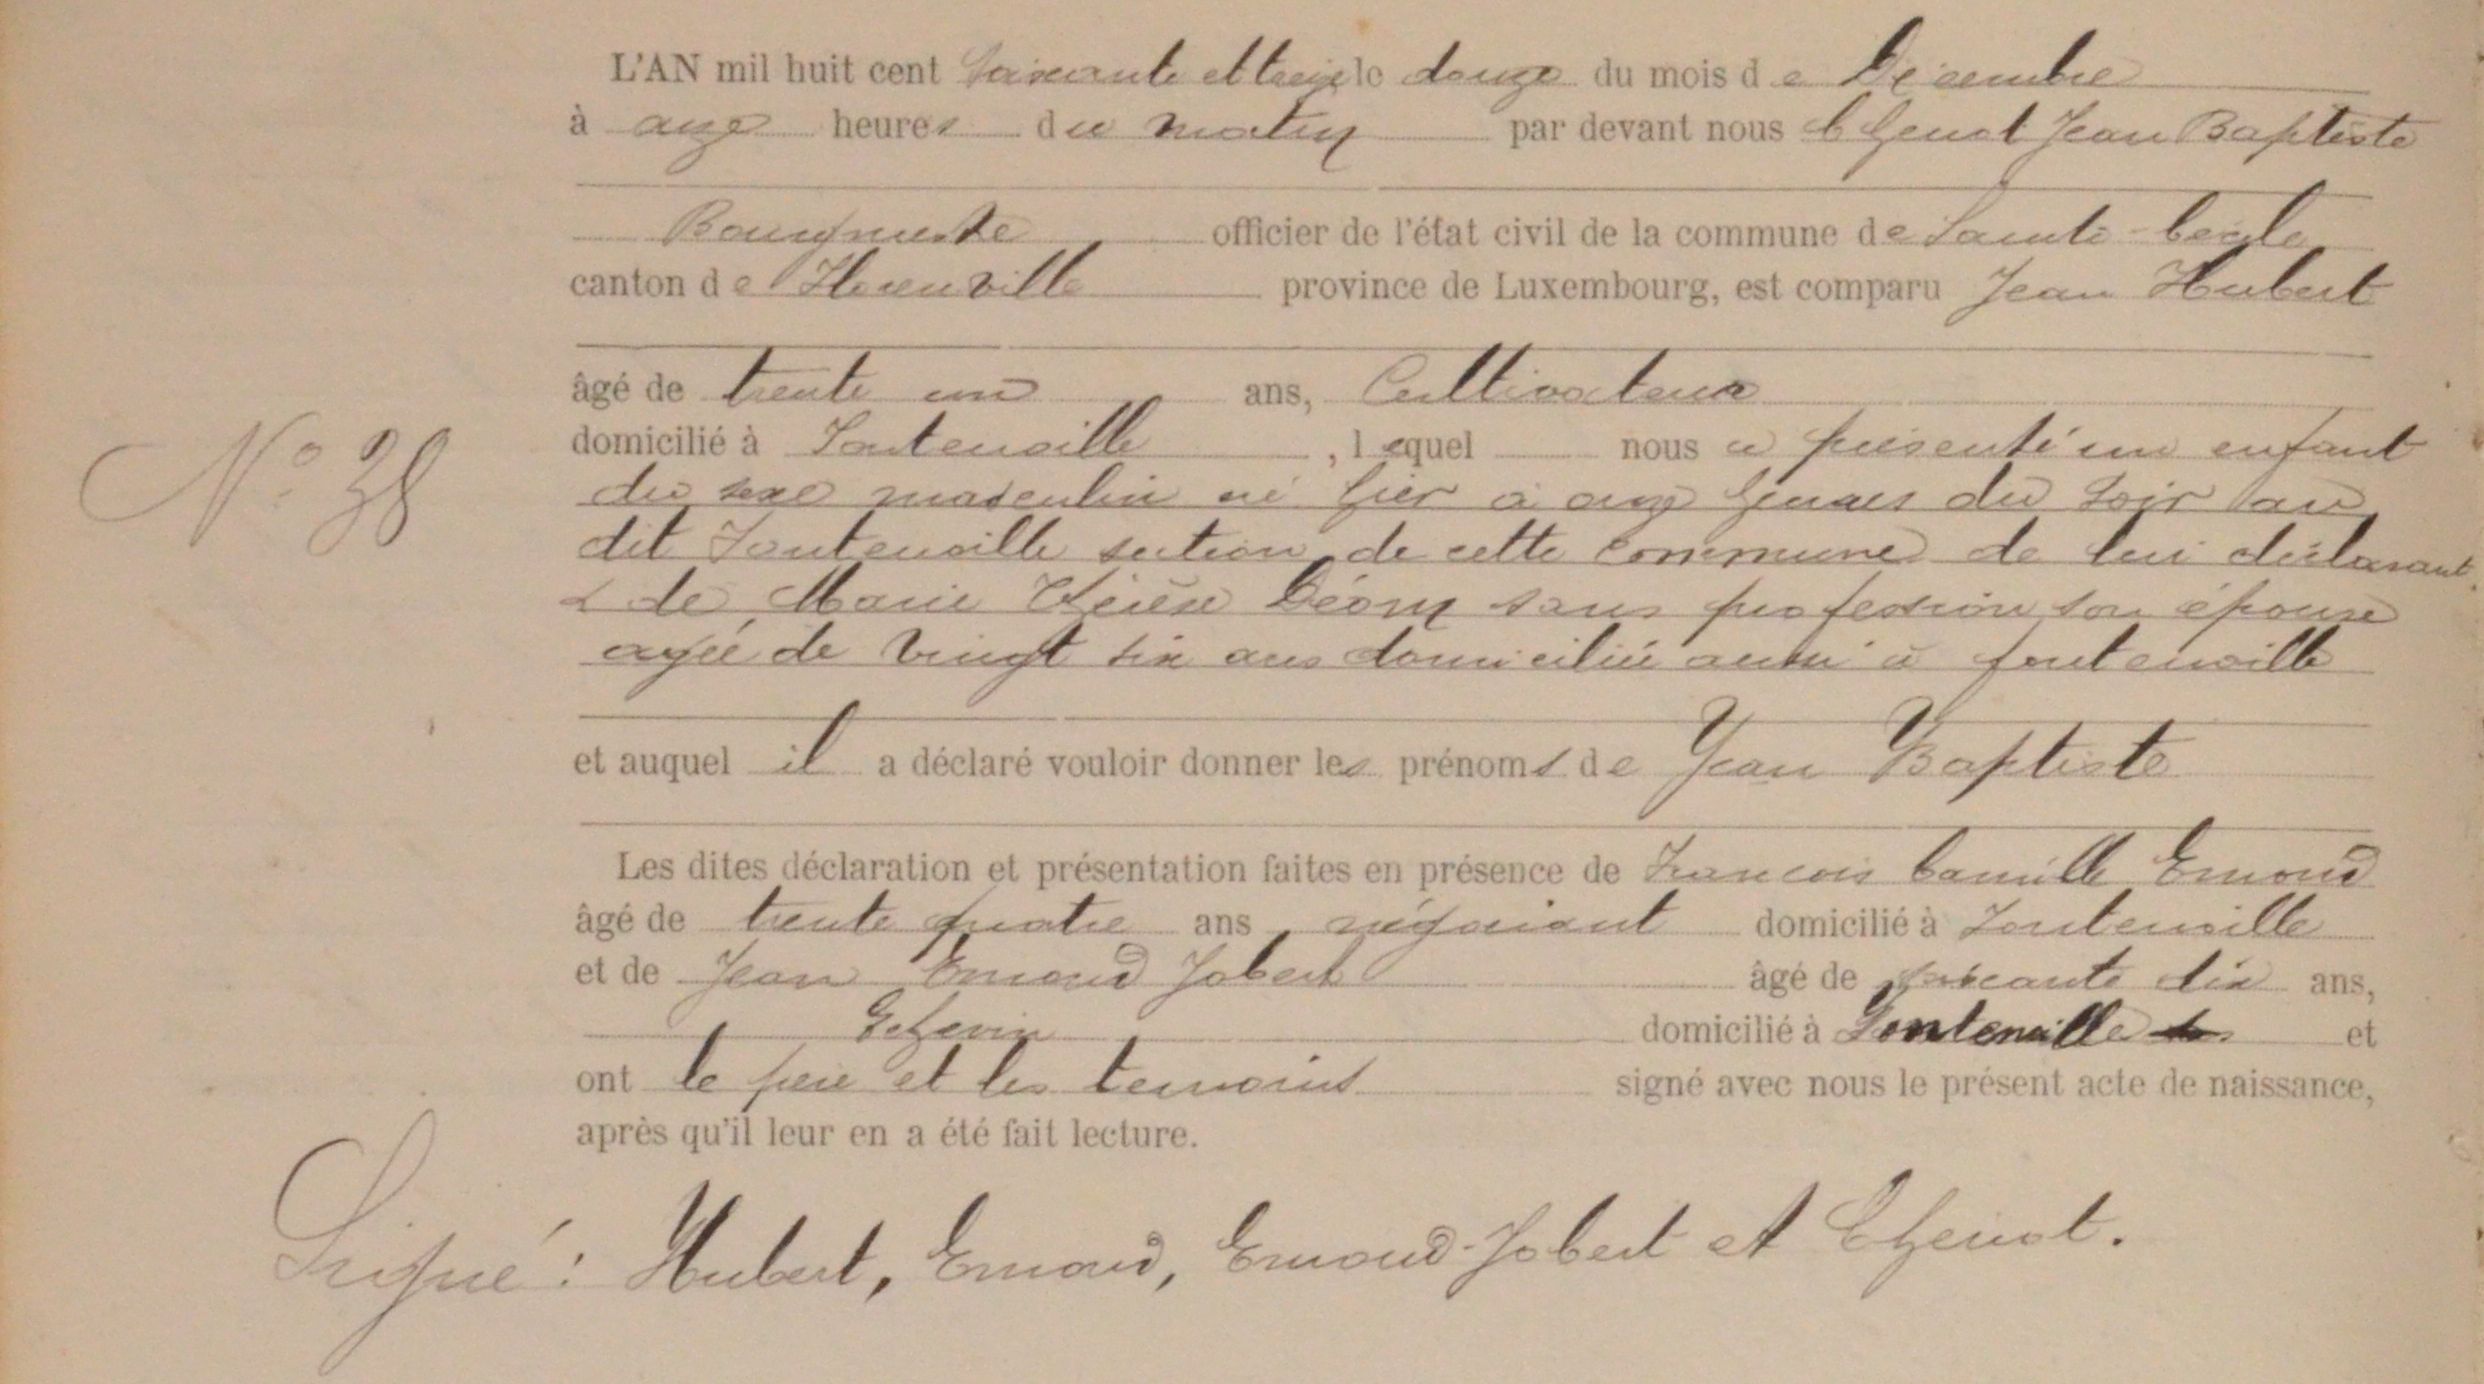 L'AN mil huit cent soixante et treize le douze du mois de Décembre
à onze heures du matin par devant nous Chenot Jean Baptiste
Bourgmestre officier de l'état civil de la commune de Sainte-Cécile
canton de Florenville province de Luxembourg, est comparu Jean Hubert
âgé de trente un ans, Cultivateur
domicilié à Fontenoille, lequel nous a présenté un enfant
N° 38
du sexe masculin né hier à onze heures du soir au
dit Fontenoille section de cette commune de lui déclarant
& de Marie Thérèse Déom sans profession son épouse
agée de vingt six ans domiciliée aussi à fontenoille
et auquel il a déclaré vouloir donner les prénoms de Jean Baptiste
Les dites déclaration et présentation faites en présence de Francois Camille Emond
âgé de trente quatre ans négociant domicilié à Fontenoille
et de Jean Emond Jobert âgé de soixante dix ans,
Echevin domicilié à Fontenoille et
ont le père et les temoins signé avec nous le présent acte de naissance,
après qu'il leur en a été fait lecture.
Signé : Hubert, Emond, Emond-Jobert et Chenot.